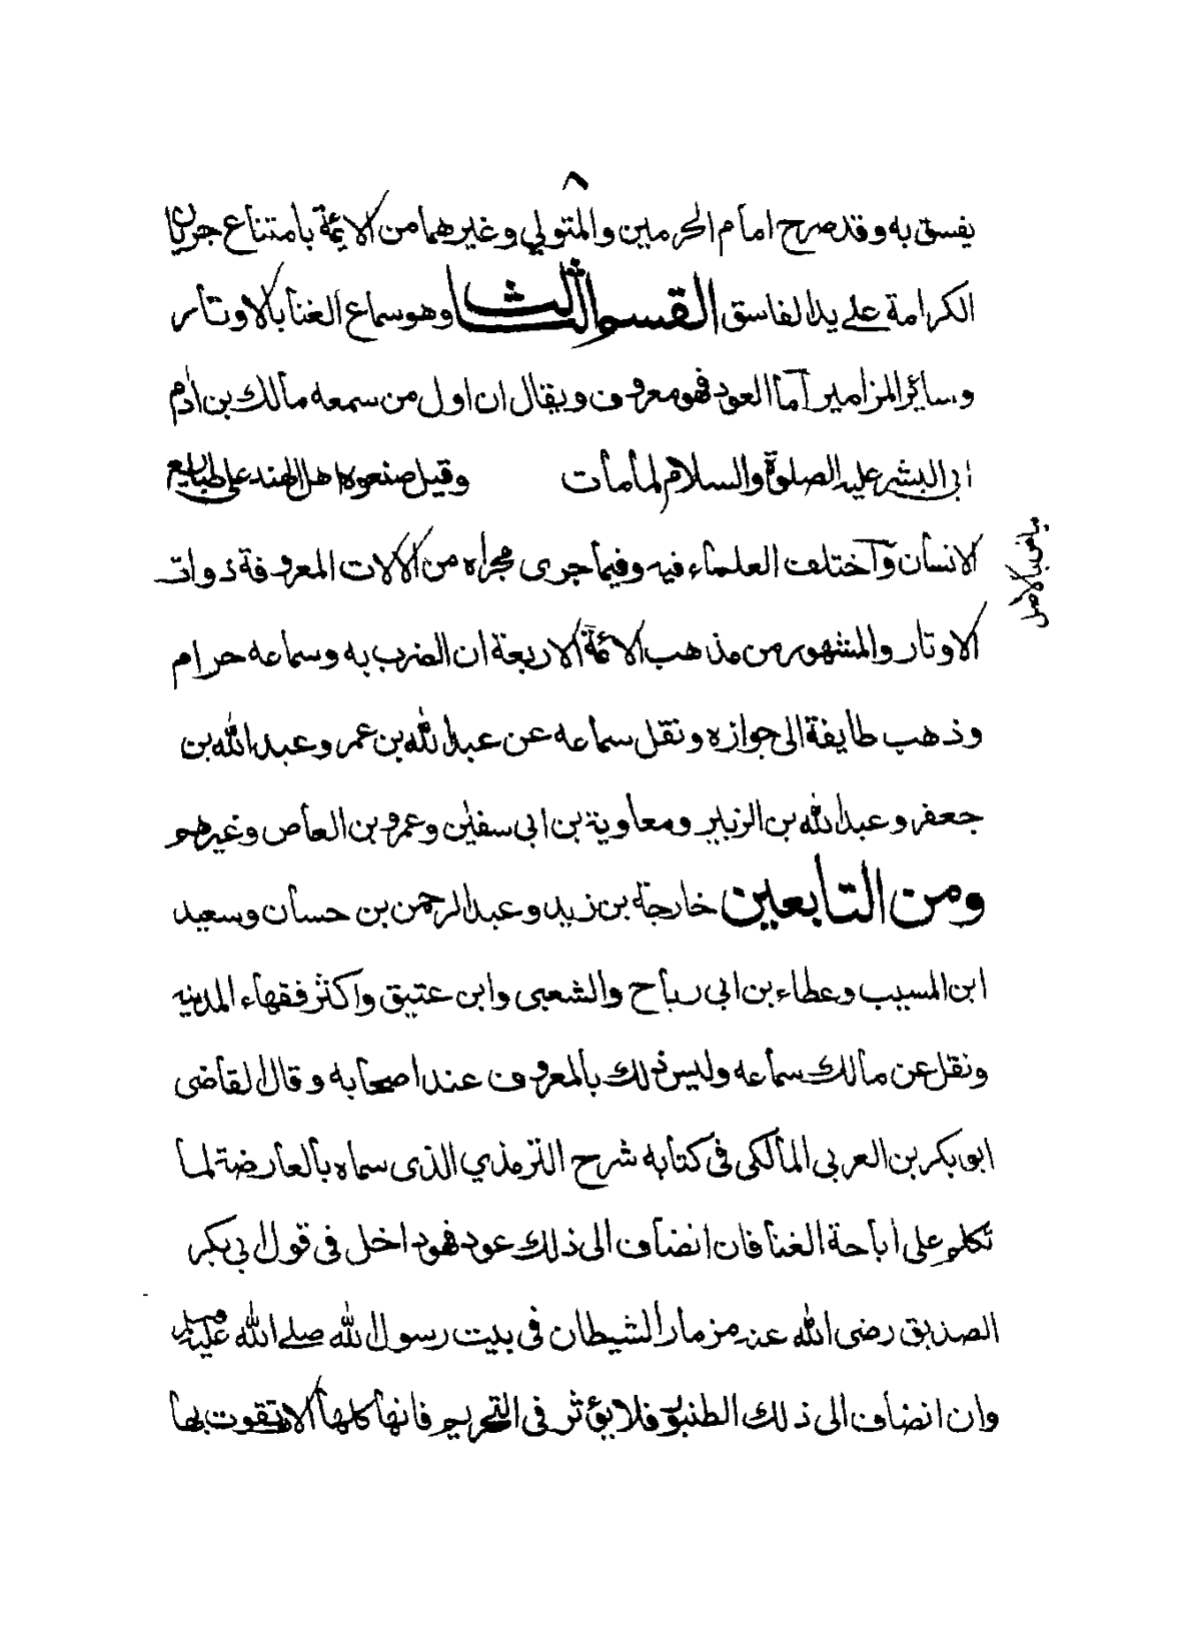 ٨
يفسق به وقد صرح امام الحرمين والمتولي وغيرهما من الايمة بامتناع جريان
الكرامة على يد الفاسق القسم الثالث وهو سماع الغنا بالاوتار
وسائر المزامير اما العود فهو معروف ويقال ان اول من سمعه مالك بن ادم
ابى البشر عليه الصلوة والسلام لما مات وقيل صنعوه اهل الهند على طبايع
الانسان واختلف العلماء فيه وفيما جرى مجراه من الالات المعروفة ذوات
بياض بالاصل
الاوتار والمشهور من مذهب الائمة الاربعة ان الضرب به وسماعه حرام
وذهب طايفة الى جوازه ونقل سماعه عن عبد الله بن عمر وعبد الله بن
جعفر وعبد الله بن الزبير ومعاوية بن ابى سفين وعمرو بن العاص وغيرهم
ومن التابعين خارجة بن زيد وعبد الرحمن بن حسان وسعيد
ابن المسيب وعطاء بن ابى رباح والشعبى وابن عتيق واكثر فقهاء المدينه
ونقل عن مالك سماعه وليس ذلك بالمعروف عند اصحابه وقال القاضى
ابو بكر بن العربى المالكى فى كتابه شرح الترمذي الذى سماه بالعارضة لما
تكلم على اباحة الغنا فان انضاف الى ذلك عود فهو داخل فى قول ابى بكر
الصديق رضى الله عنه مزمار الشيطان فى بيت رسول الله صلى الله عليه وسلم
وان انضاف الى ذلك الطنبور فلا يؤثر فى التحريم فانها كلها الات تقوت بها